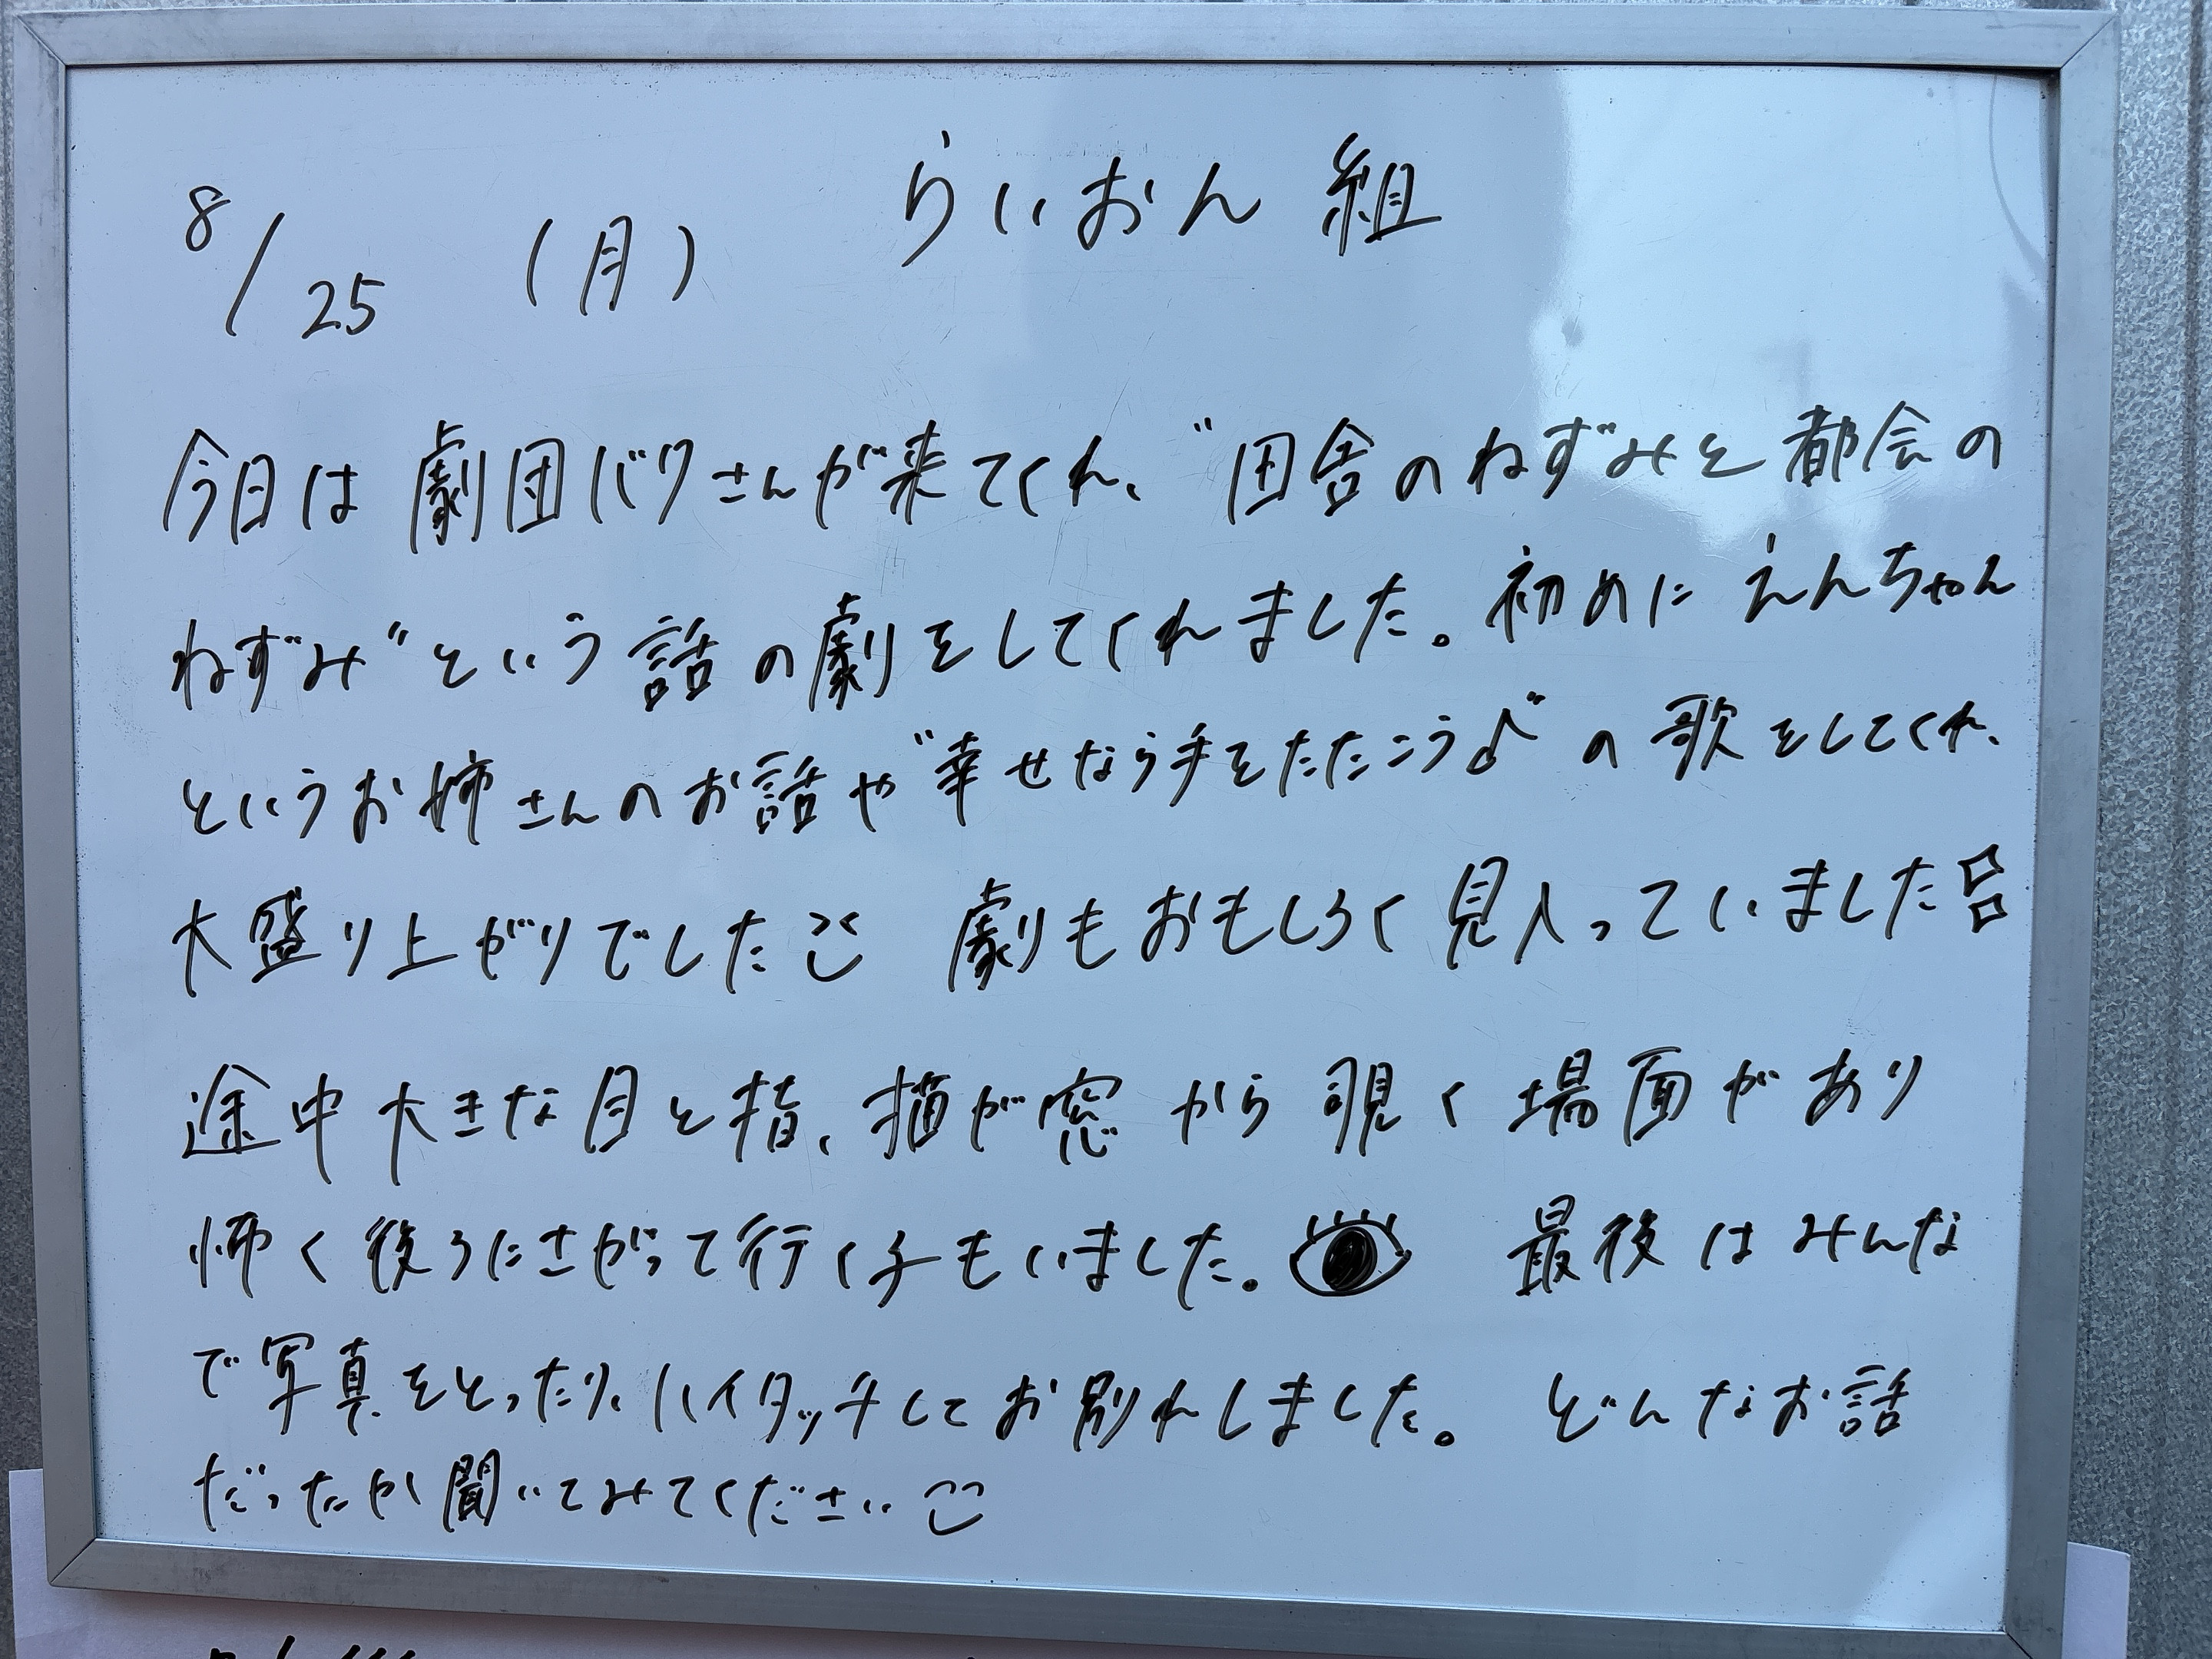 8/25 (月) らいおん組
今日は劇団バクさんが来てくれ、"田舎のねずみと都会の
ねずみ"という話の劇をしてくれました。初めにえんちゃん
というお姉さんのお話や"幸せなら手をたたこう♪"の歌をしてくれ、
大盛り上がりでした 劇もおもしろく見入っていました
途中大きな目と指、猫が窓から覗く場面があり
怖く後ろにさがって行く子もいました。 最後はみんな
で写真をとったり、ハイタッチしてお別れしました。 どんなお話
だったか聞いてみてください